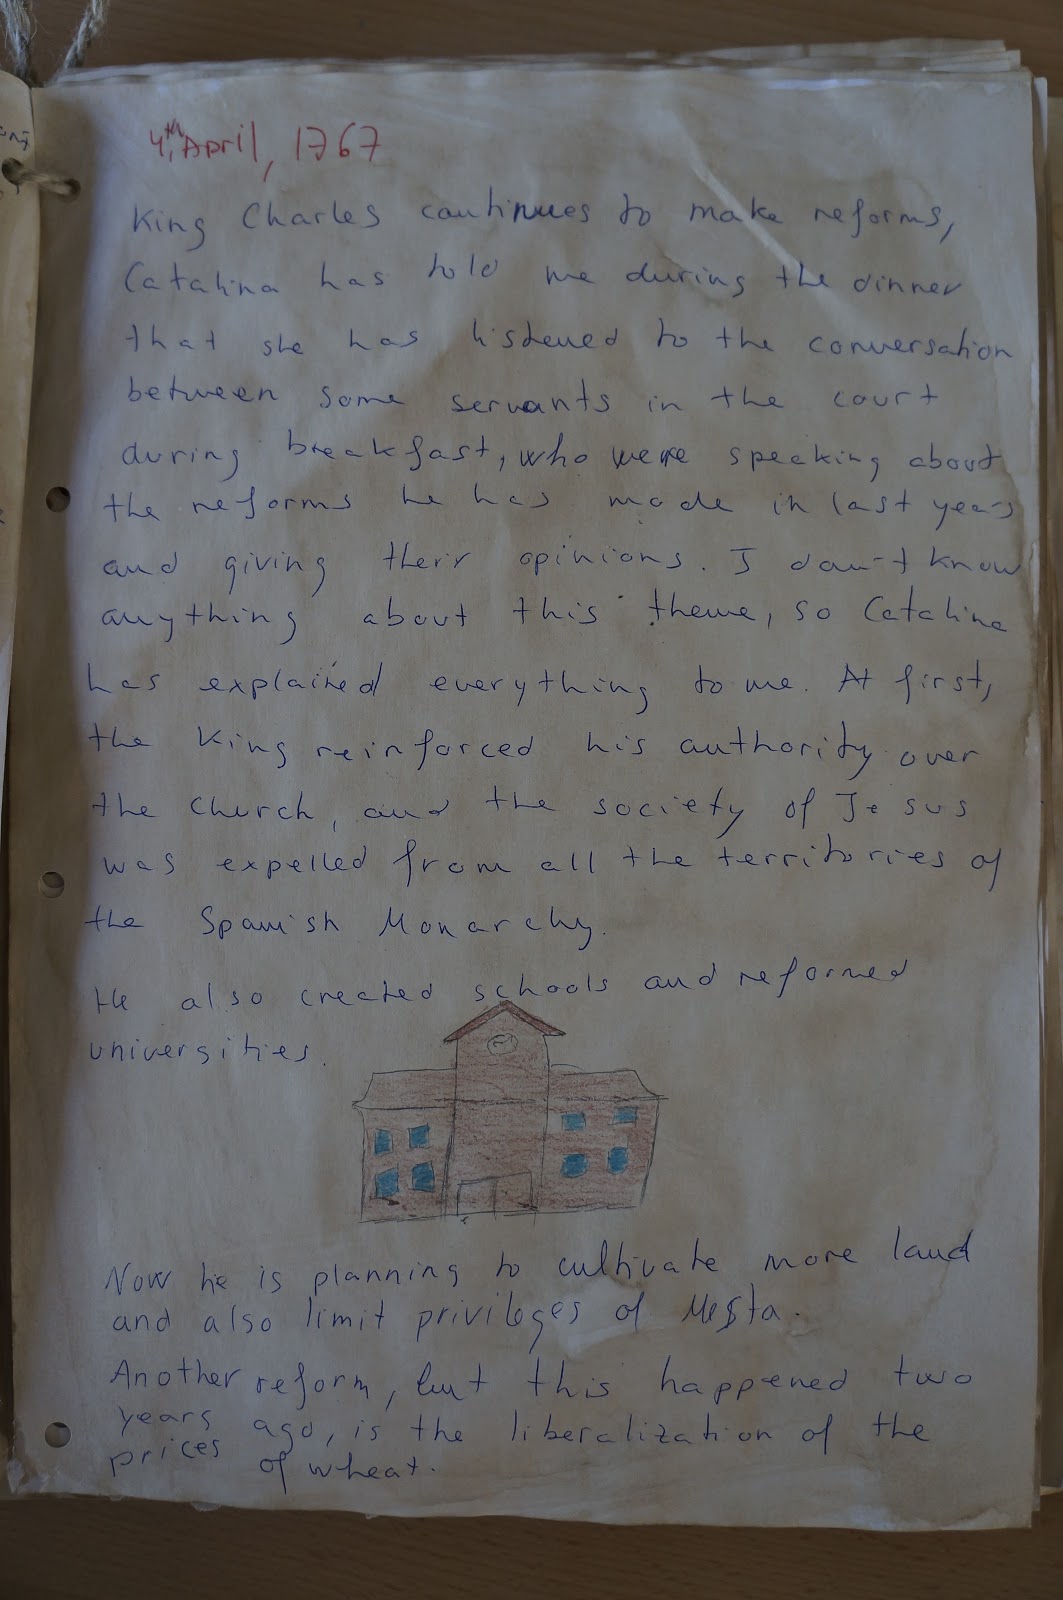 4th April, 1767
King Charles continues to make reforms,
Catalina has told me during the dinner
that she has listened to the conversation
between some servants in the court
during breakfast, who were speaking about
the reforms he has made in last years
and giving their opinions. I don't know
anything about this theme, so Catalina
has explained everything to me. At first,
the King reinforced his authority over
the church, and the society of Jesus
was expelled from all the territories of
the Spanish Monarchy.
He also created schools and reformed
universities.
Now he is planning to cultivate more land
and also limit privileges of Mesta.
Another reform, but this happened two
years ago, is the liberalization of the
prices of wheat.